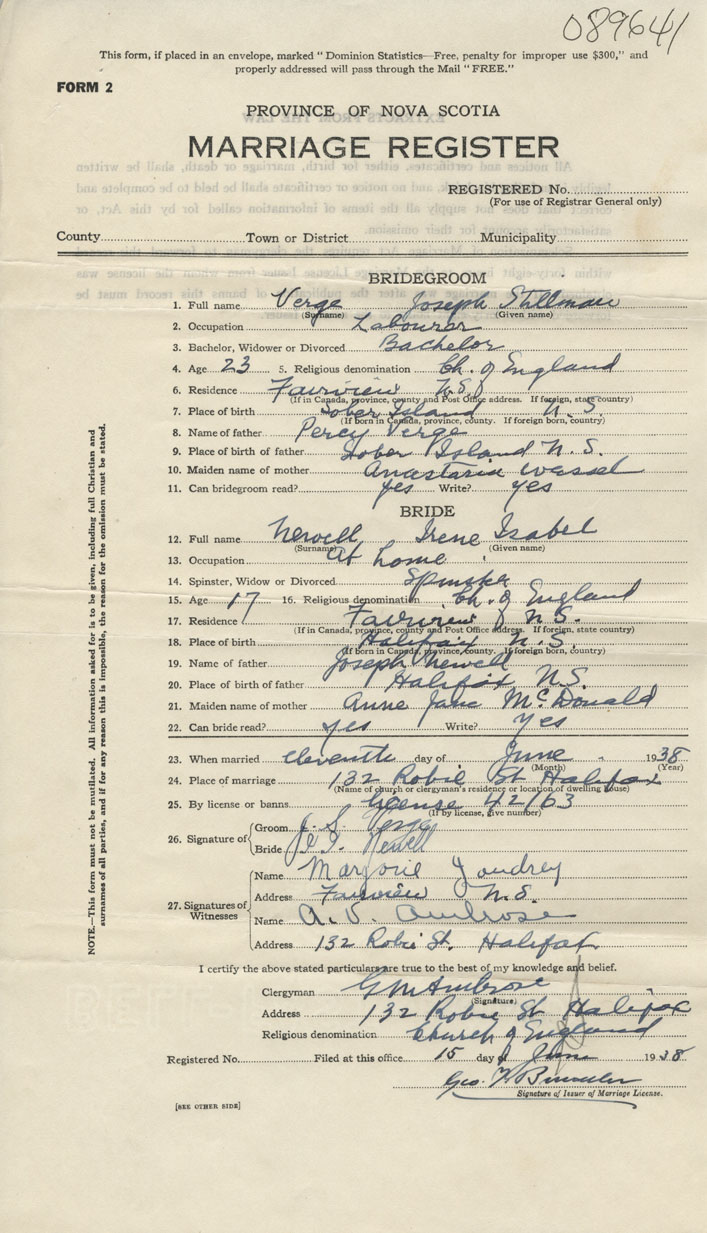 089641
This form, if placed in an envelope, marked "Dominion Statistics—Free, penalty for improper use $300," and
properly addressed will pass through the Mail "FREE."
FORM 2
PROVINCE OF NOVA SCOTIA
MARRIAGE REGISTER
REGISTERED No.
(For use of Registrar General only)
County Town or District Municipality
BRIDEGROOM
1. Full name Verge Joseph Stillman
(Surname) (Given name)
2. Occupation Labourer
3. Bachelor, Widower or Divorced Bachelor
4. Age 23 5. Religious denomination Ch. of England
6. Residence Fairview N.S.
(If in Canada, province, county and Post Office address. If foreign, state country)
7. Place of birth Sober Island N.S.
(If born in Canada, province, county. If foreign born, country)
8. Name of father Percy Verge
9. Place of birth of father Sober Island N.S.
10. Maiden name of mother Anastasia Wassel
11. Can bridegroom read? yes Write? yes
BRIDE
12. Full name Newell Irene Isabel
(Surname) (Given name)
13. Occupation At home
14. Spinster, Widow or Divorced Spinster
15. Age 17 16. Religious denomination Ch. of England
17. Residence Fairview N.S.
(If in Canada, province, county and Post Office address. If foreign, state country)
18. Place of birth Halifax N.S.
(If born in Canada, province, county. If foreign born, country)
19. Name of father Joseph Newell
20. Place of birth of father Halifax N.S.
21. Maiden name of mother Anne Jane McDonald
22. Can bride read? yes Write? yes
23. When married eleventh day of June 1938
(Month) (Year)
24. Place of marriage 132 Robie St Halifax
(Name of church or clergyman's residence or location of dwelling house)
25. By license or banns license 42163
(If by license, give number)
26. Signature of Groom J. S. Verge
Bride I. Newell
27. Signatures of Witnesses
Name Marjorie Jaudrey
Address Fairview N.S.
Name A. V. Ambrose
Address 132 Robie St. Halifax
I certify the above stated particulars are true to the best of my knowledge and belief.
Clergyman G M Ambrose
(Signature)
Address 132 Robie St Halifax
Religious denomination Church of England
Registered No. Filed at this office 15 day of June 1938
Geo.
Signature of Issuer of Marriage License.
[SEE OTHER SIDE]
NOTE.—This form must not be mutilated. All information asked for is to be given, including full Christian and
surnames of all parties, and if for any reason this is impossible, the reason for the omission must be stated.